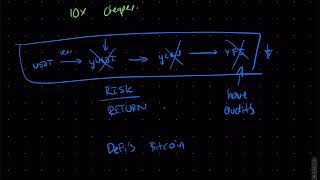 10x cheaper.
USDT iearn yUSDT yCRV YFI
RISK
RETURN
have
audits
DeFi's Bitcoin